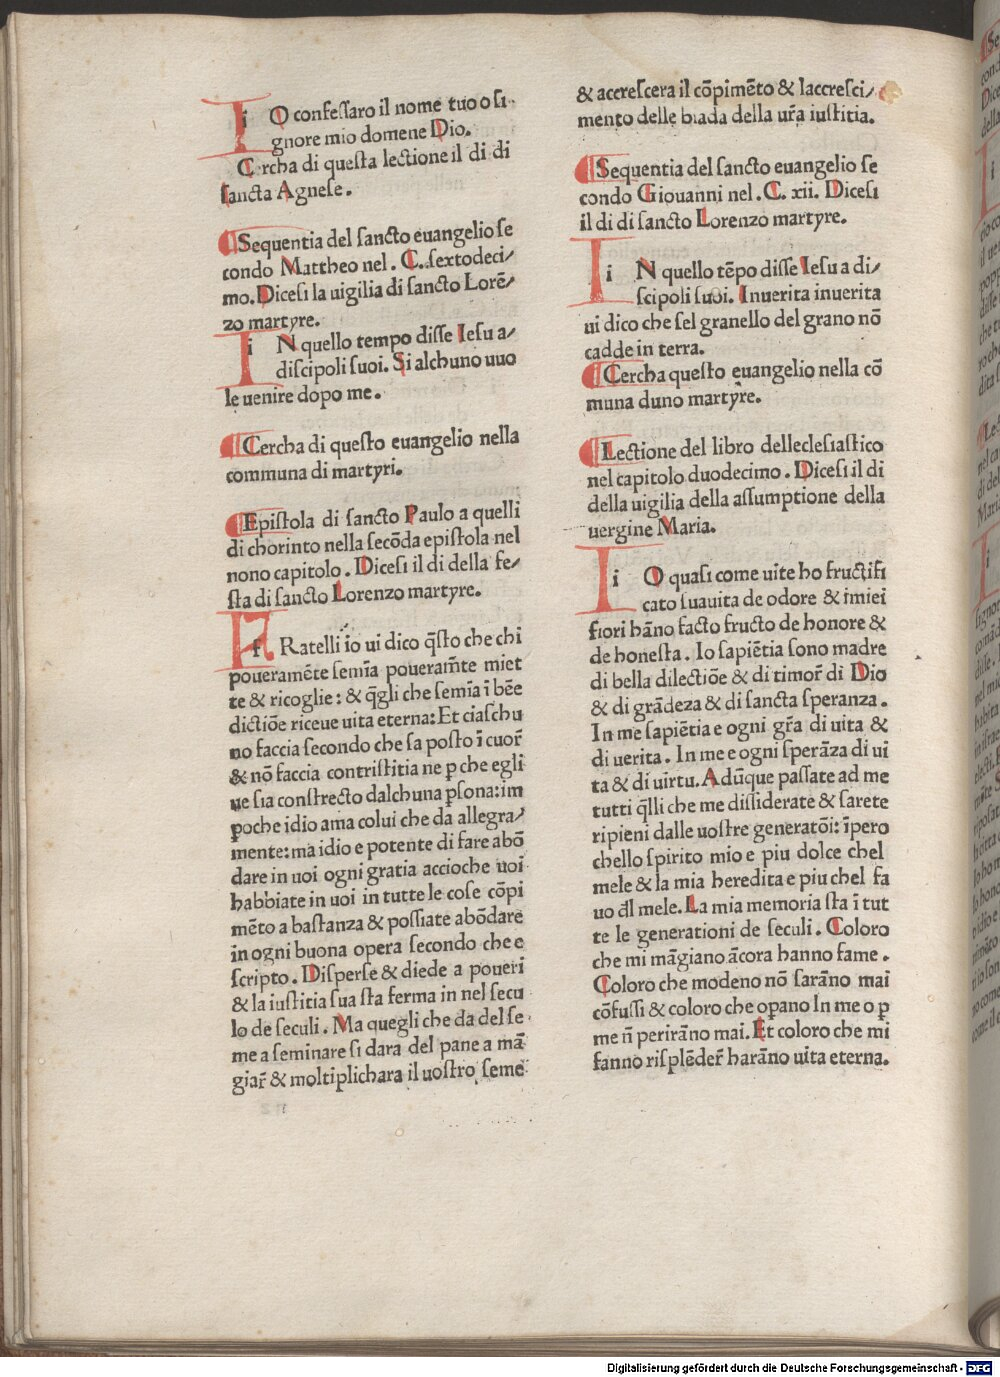 IO confessaro il nome tuo o si
gnore mio domene Dio.
Cercha di questa lectione il di di
sancta Agnese.
¶ Sequentia del sancto euangelio se
condo Mattheo nel. C. sextodeci/
mo. Dicesi la uigilia di sancto Lorē/
zo martyre.
IN quello tempo disse Iesu a/
discipoli suoi. Si alchuno uuo
le uenire dopo me.
¶ Cercha di questo euangelio nella
communa di martyri.
¶ Epistola di sancto Paulo a quelli
di chorinto nella secōda epistola nel
nono capitolo. Dicesi il di della fe/
sta di sancto Lorenzo martyre.
FRatelli io ui dico q̄sto che chi
poueramēte semīa poueram̄te miet
te & ricoglie: & q̄gli che semīa ī bēe
dictiōe riceue uita eterna: Et ciaschu
no faccia secondo che sa posto ī cuor̄
& nō faccia contristitia ne p che egli
ue sia constrecto dalchuna psona: im
poche idio ama colui che da allegra/
mente: ma idio e potente di fare abō
dare in uoi ogni gratia accioche uoi
habbiate in uoi in tutte le cose cōpi
mēto a bastanza & possiate abōdare
in ogni buona opera secondo che e
scripto. Disperse & diede a poueri
& la iustitia sua sta ferma in nel secu
lo de seculi. Ma quegli che da del se
me a seminare si dara del pane a mā
giar̄ & moltiplichara il uostro seme
& accrescera il cōpimēto & laccresci/
mento delle biada della ur̄a iustitia.
¶ Sequentia del sancto euangelio se
condo Giouanni nel. C. xii. Dicesi
il di di sancto Lorenzo martyre.
IN quello tēpo disse Iesu a di/
scipoli suoi. Inuerita inuerita
ui dico che sel granello del grano nō
cadde in terra.
¶ Cercha questo euangelio nella cō
muna duno martyre.
¶ Lectione del libro delleclesiastico
nel capitolo duodecimo. Dicesi il di
della uigilia della assumptione della
uergine Maria.
IO quasi come uite ho fructifi
cato suauita de odore & imiei
fiori hāno facto fructo de honore &
de honesta. Io sapiētia sono madre
di bella dilectiōe & di timor̄ di Dio
& di grādeza & di sancta speranza.
In me sapiētia e ogni gr̄a di uita &
di uerita. In me e ogni sperāza di ui
ta & di uirtu. Adūque passate ad me
tutti q̄lli che me dissiderate & sarete
ripieni dalle uostre generatōi: īpero
chello spirito mio e piu dolce chel
mele & la mia heredita e piu chel fa
uo dl mele. La mia memoria sta ī tut
te le generationi de seculi. Coloro
che mi māgiano ācora hanno fame.
Coloro che modeno nō sarāno mai
cōfussi & coloro che opano In me o p
me n̄ perirāno mai. Et coloro che mi
fanno risplēder̄ harāno uita eterna.
Digitalisierung gefördert durch die Deutsche Forschungsgemeinschaft - DFG